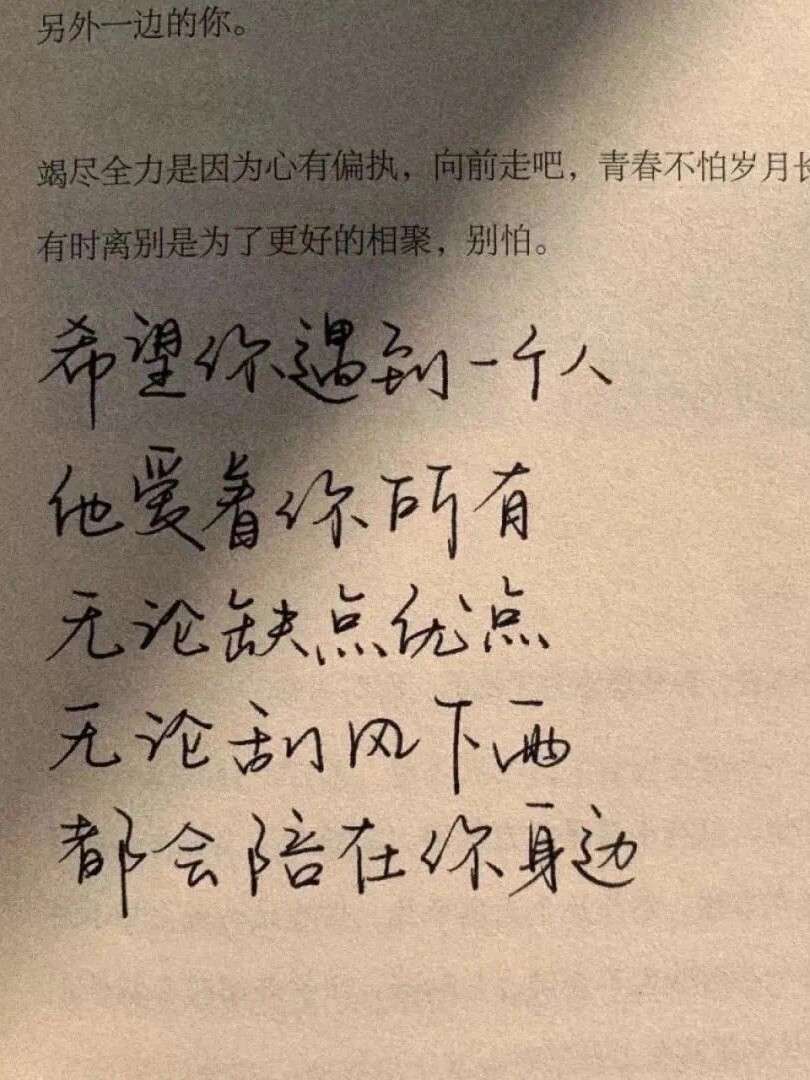 另外一边的你。
竭尽全力是因为心有偏执，向前走吧，青春不怕岁月长
有时离别是为了更好的相聚，别怕。
希望你遇到一个人
他爱着你所有
无论缺点优点
无论刮风下雨
都会陪在你身边